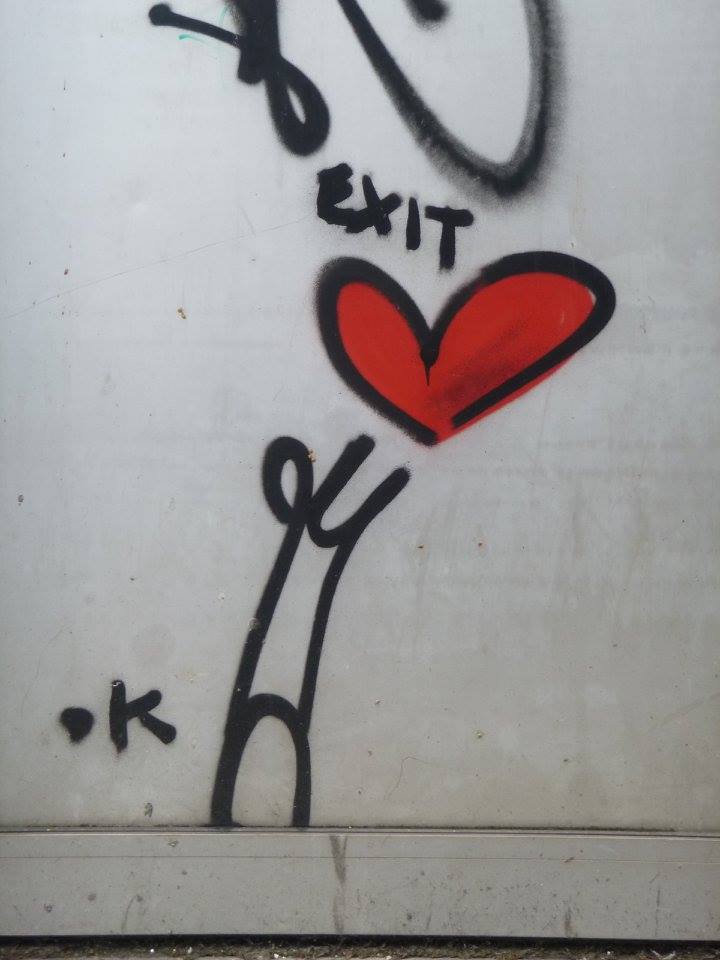 EXIT
.K